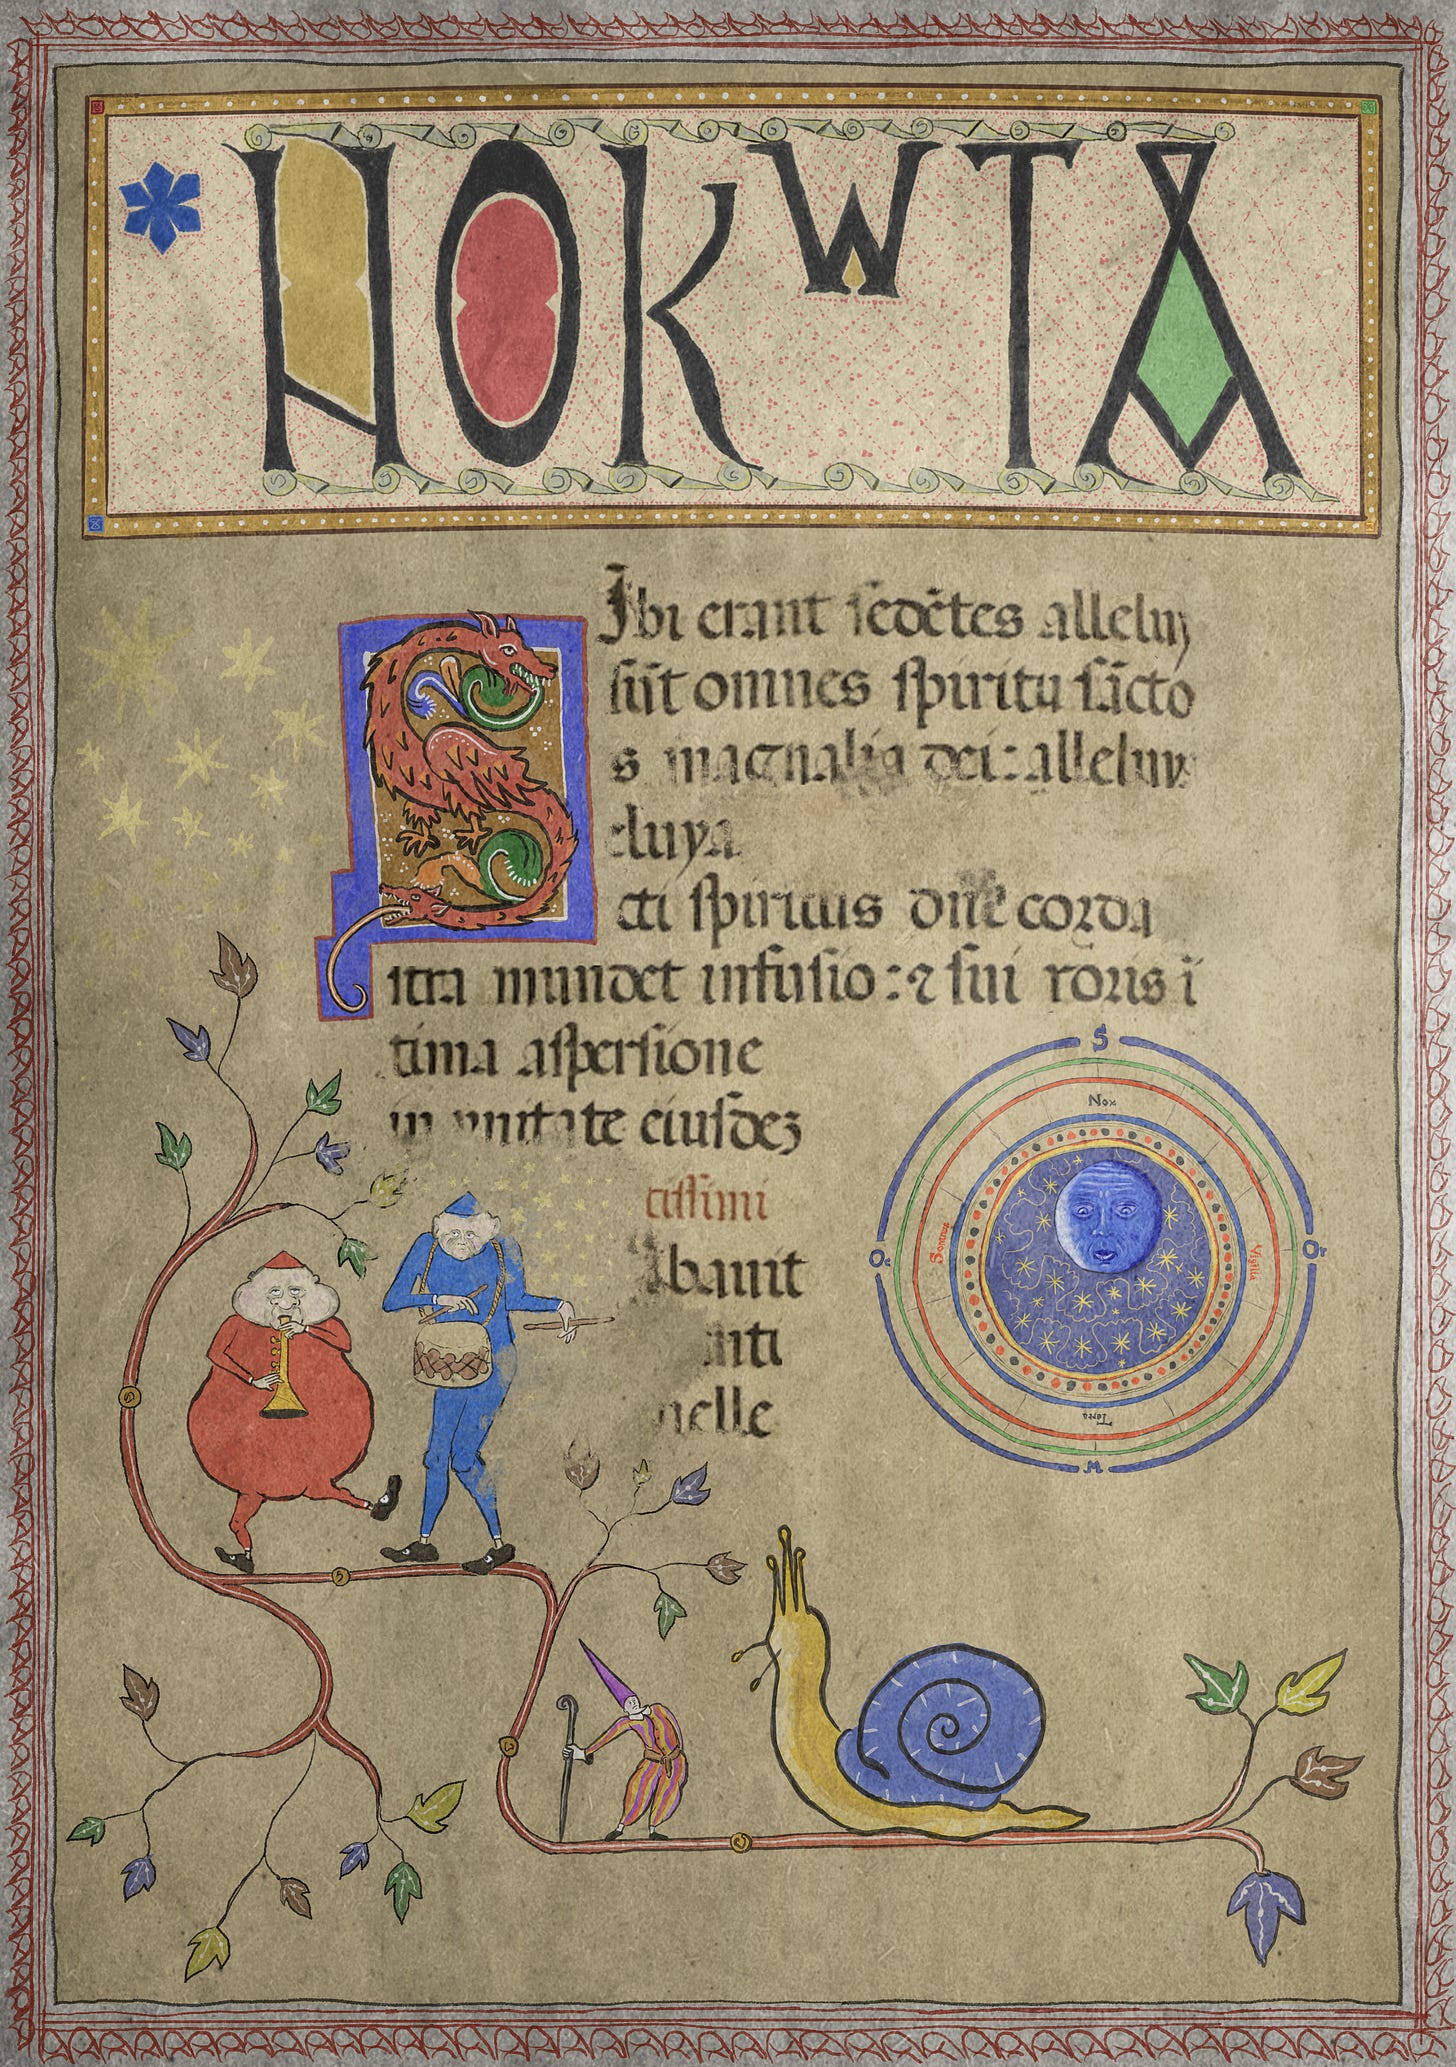 NOKWTA
Ibi erant sedētes alleluy
sūt omnes spiritu sācto
s magnalia dei: alleluy
eluya
cti spiritus dñe corda
stra mundet infusio: ⁊ sui roris ī
tima aspersione
in unitate eiusdez
cissimi
bauit
nti
nelle
S
Nox
Oc
Or
Vigilia
Terra
M